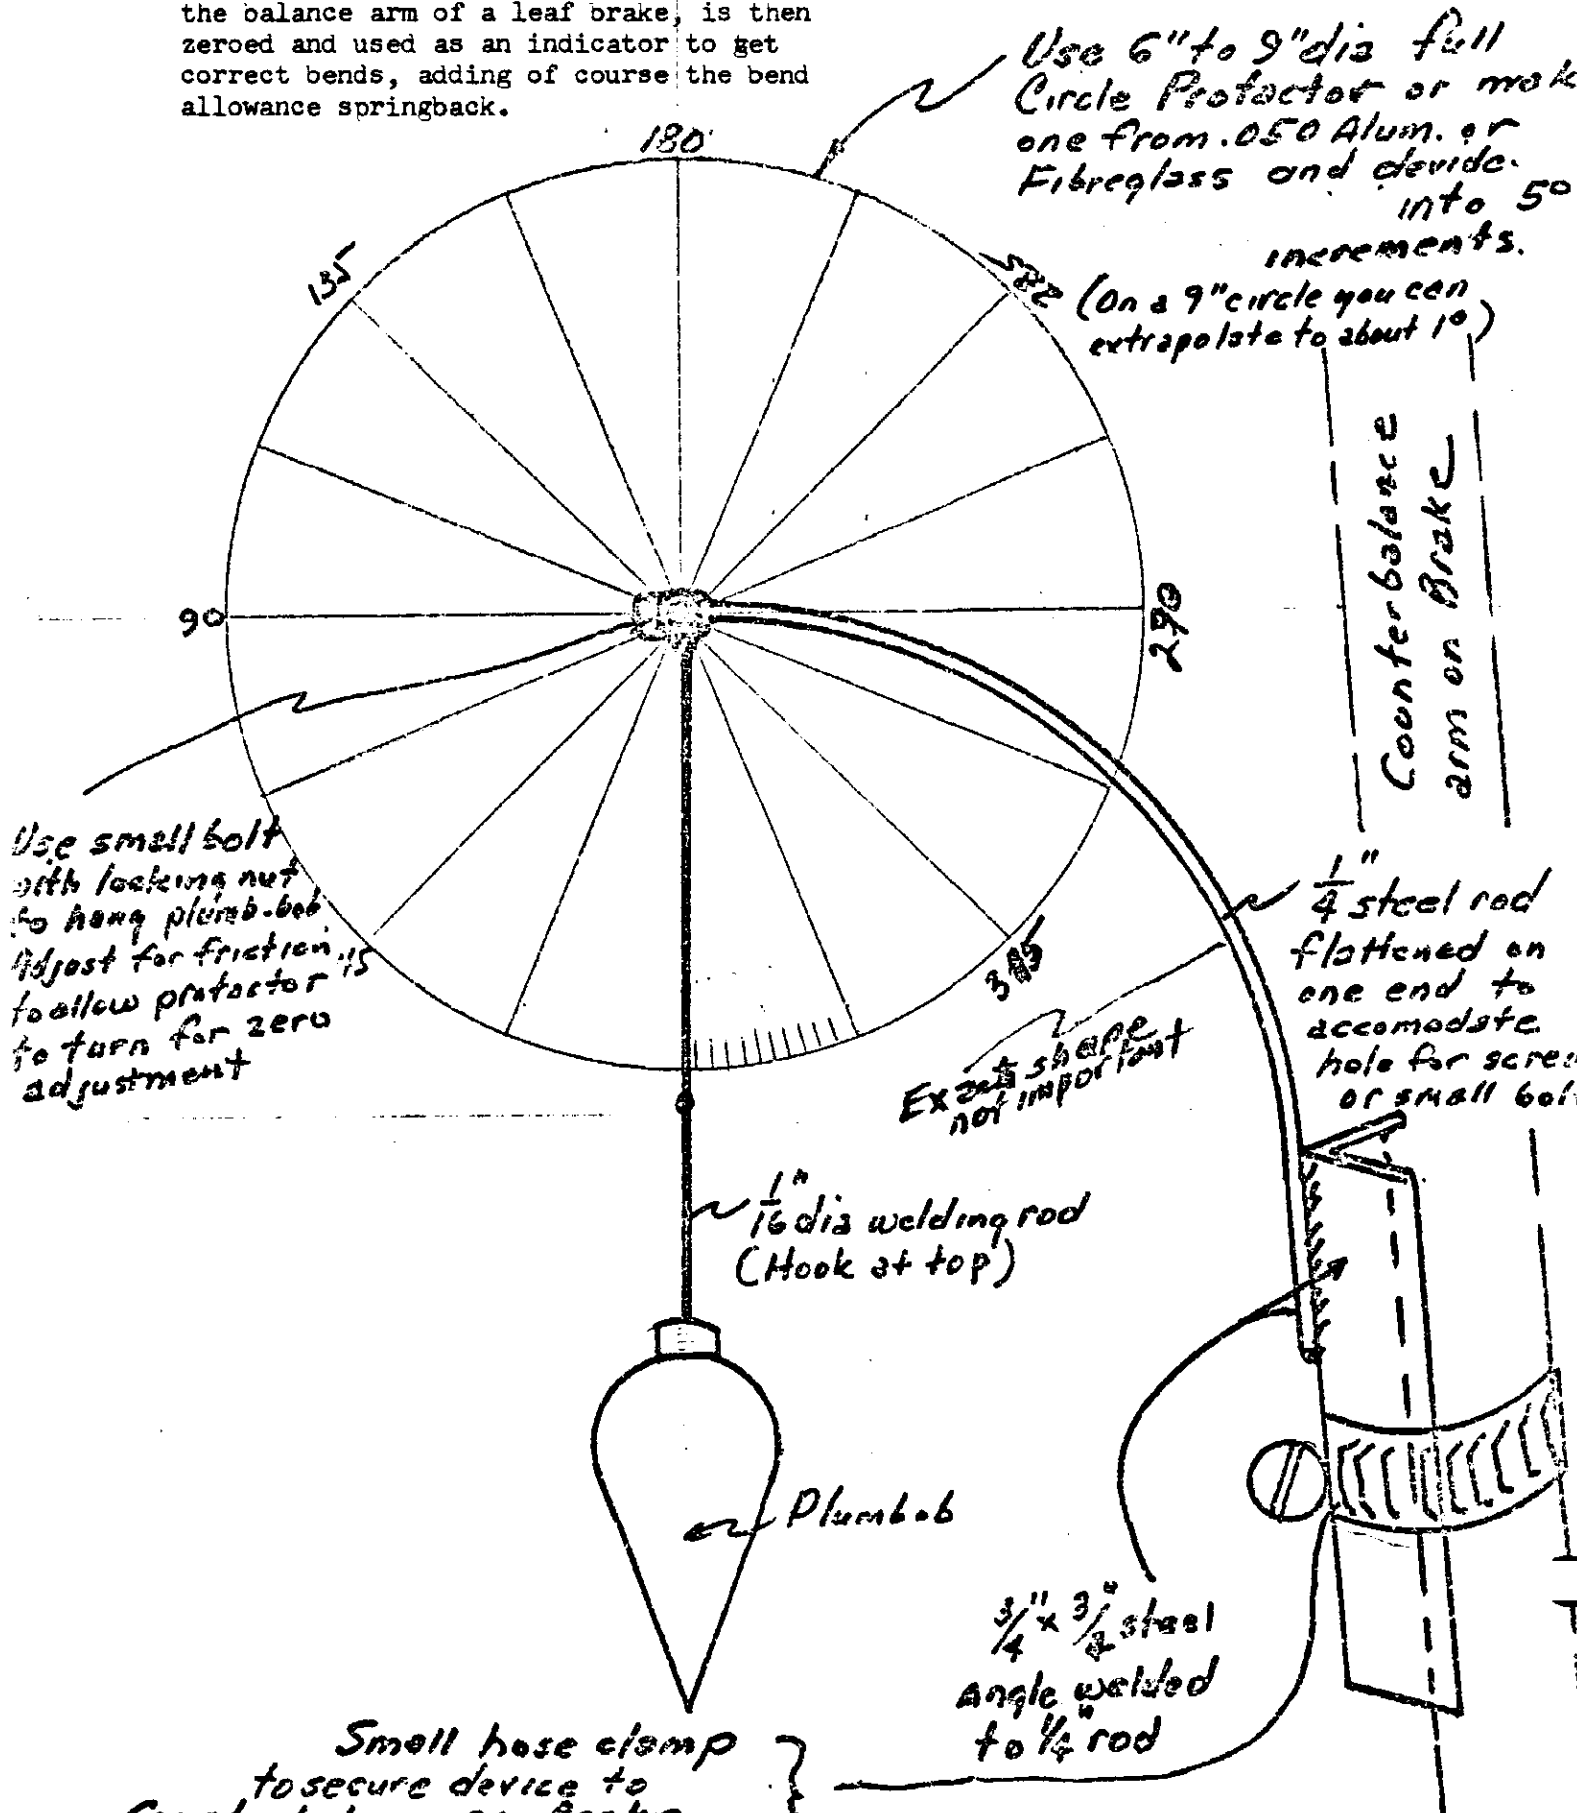 the balance arm of a leaf brake, is then
zeroed and used as an indicator to get
correct bends, adding of course the bend
allowance springback.
Use 6" to 9" dia full
Circle Protactor or mak
one from .050 Alum. or
Fibreglass and devide
into 5°
increments.
(On a 9" circle you can
extrapolate to about 1°)
180
135
90
45
Counterbalance
arm on Brake
Use small bolt
with locking nut
to hang plumb-bob
Adjust for friction
to allow protactor
to turn for zero
adjustment
1/4" steel rod
flattened on
one end to
accomodate
hole for scre
or small bol
Exact shape
not important
1/16" dia welding rod
(Hook at top)
Plumbob
3/4" x 3/4" steel
angle welded
to 1/4" rod
Small hose clamp
to secure device to